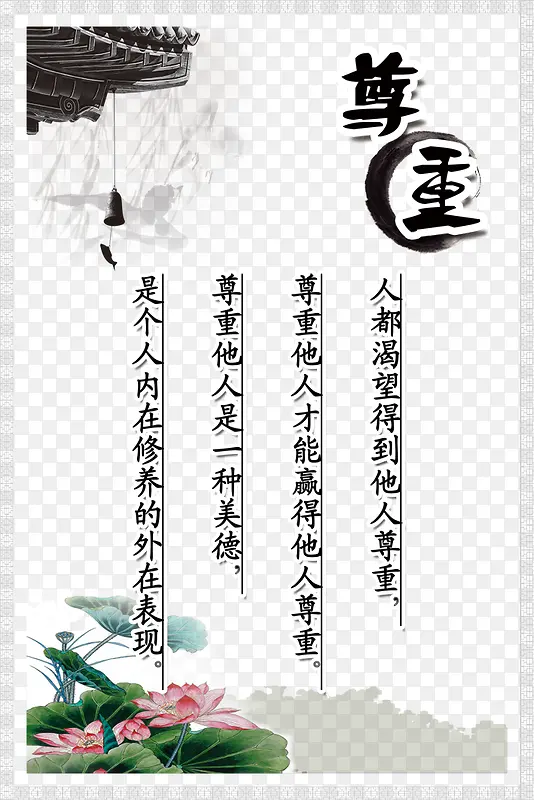 尊重
人都渴望得到他人尊重，
尊重他人才能赢得他人尊重。
尊重他人是一种美德，
是个人内在修养的外在表现。